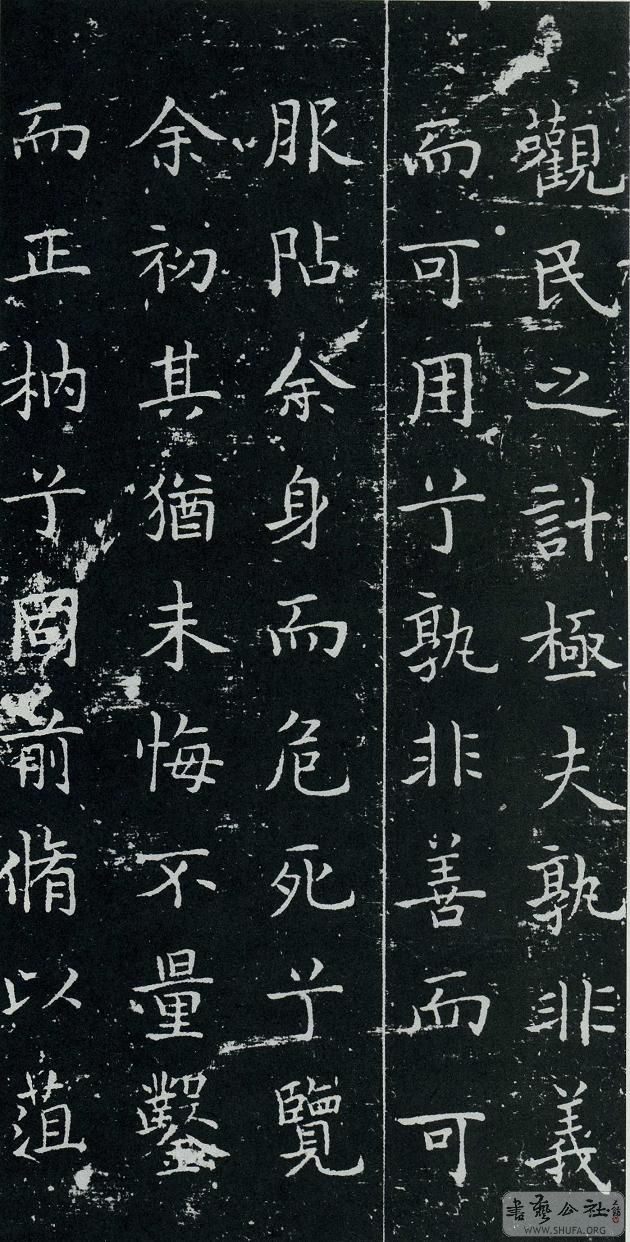 觀民之計極夫孰非義
而可用兮孰非善而可
服阽余身而危死兮覽
余初其猶未悔不量鑿
而正枘兮固前脩以菹
書藝公社
WWW.SHUFA.ORG